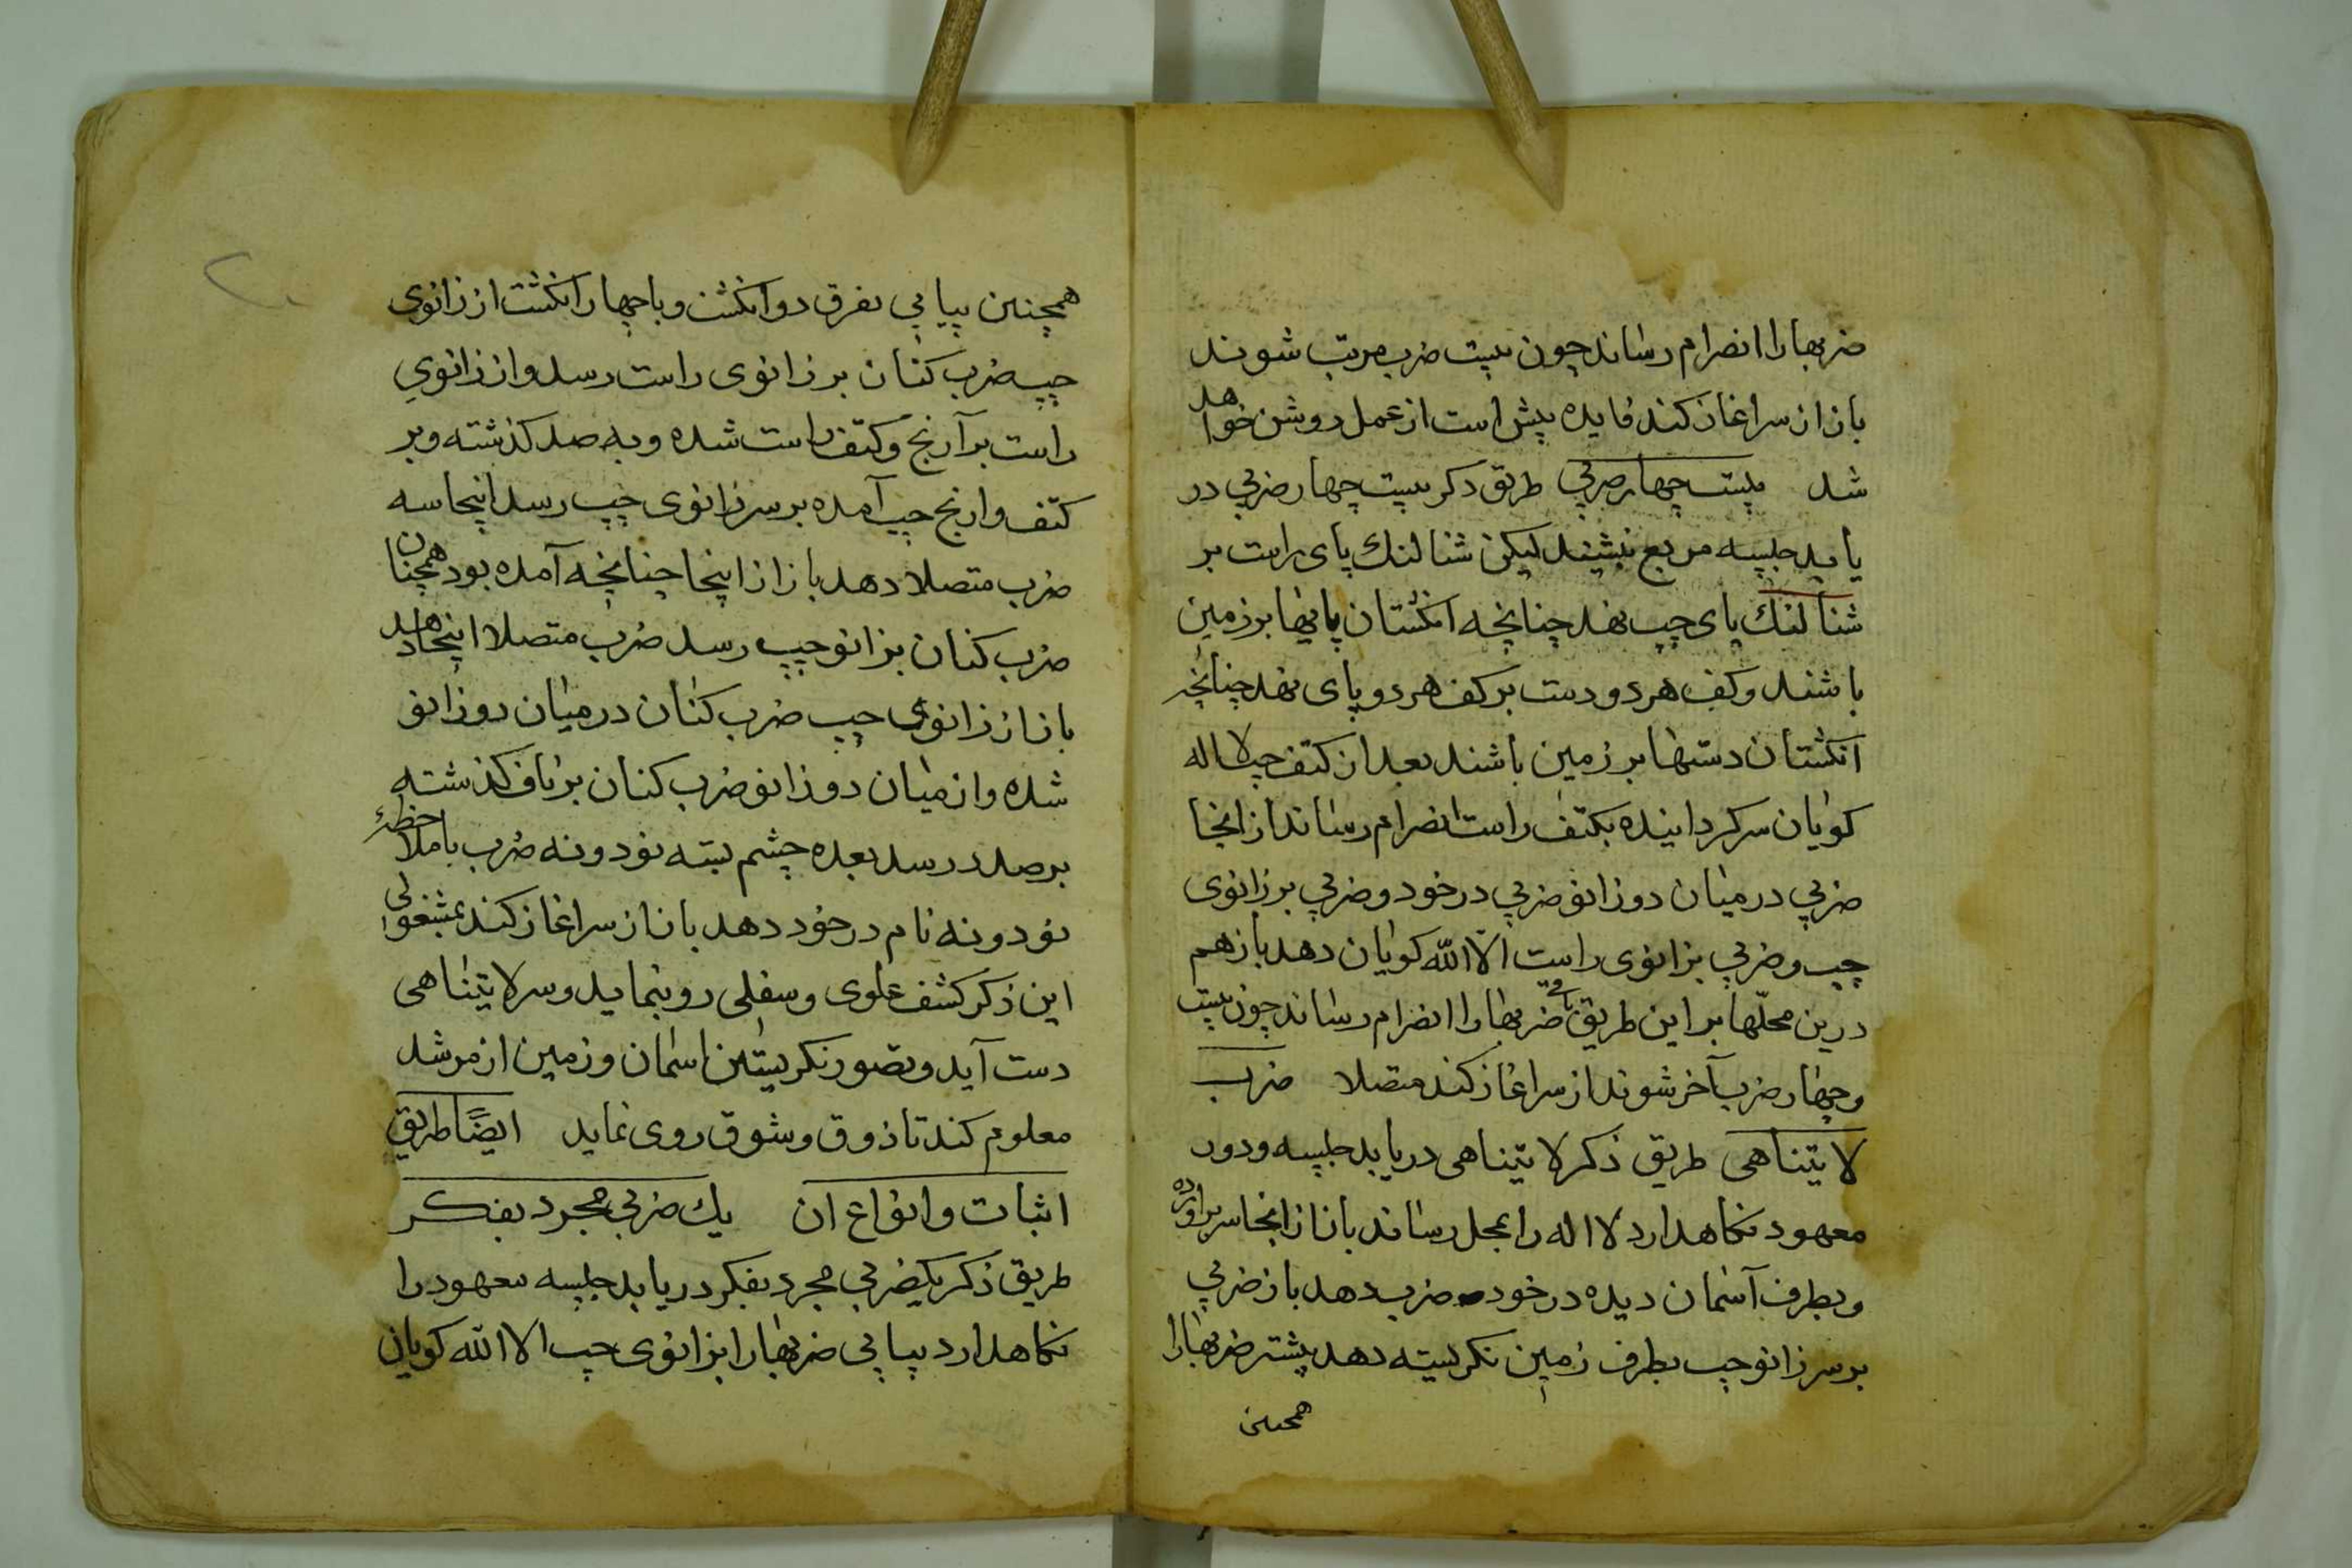 ضربها را انضرام رساند چون بیست ضرب مرتب شوند
باز از سر اغاز کند فایده بیش است از عمل روشن خواهد
شد بیست چهار ضربی طریق ذکر بیست چهار ضربی در
یابد جلسه مربع نبشیند لیکن شتالنك پای راست بر
شتالنك پای چپ نهد چنانچه انکشتان پایها بر زمین
باشند و کف هر دو دست بر کف هر دو پای نهد چنانچه
انکشتان دستها بر زمین باشند بعد از کتف چپ لا اله
کویان سر کرداینده بکتف راست انضرام رساند از انجا
ضربی در میان دو زانو ضربی در خود و ضربی بر زانوی
چپ و ضربی بزانوی راست الا الله کویان دهد باز هم
درین محلّها بر این طریق باقی ضربها را انضرام رساند چون بیست
و چهار ضرب آخر شوند از سر اغاز کند متصلا ضرب
لا یتناهی طریق ذکر لا یتناهی دریابد جلسه و دور
معهود نکاهدارد لا اله را بمحل رساند باز از انجا سر براورده
و بطرف آسمان دیده در خود ضرب دهد باز ضربی
بر سر زانو چپ بطرف زمین نکریسته دهد پیشتر ضربها را
همچنین
۲۰
همچنین پیاپی بفرق دو انکشت و یا چهار انکشت از زانوی
چپ ضرب کنان بر زانوی راست رسد و از زانوی
راست بر آرنج و کتف راست شده و به صدر کذشته و بر
کتف و ارنج چپ آمده بر سر زانوی چپ رسد اینجا سه
ضرب متصلا دهد باز از اینجا چنانچه آمده بود همچنان
ضرب کنان بزانو چپ رسد ضرب متصلا اینجا دهد
باز از زانوی چپ ضرب کنان در میان دو زانو
شده و از میان دو زانو ضرب کنان بر ناف کذشته
بر صدر رسد بعده چشم بسته نود و نه ضرب با ملاحظهٔ
نود و نه نام در خود دهد باز از سر اغاز کند بمشغولی
این ذکر کشف علوی و سفلی رو بنماید و سر لا یتناهی
دست آید و تصور نکریستن اسمان و زمین از مرشد
معلوم کند تا ذوق و شوق روی نماید ایضًا طریق
اثبات و انواع ان یك ضربی مجرد بفکر
طریق ذکر یکضربی مجرد بفکر دریابد جلسه معهود را
نکاهدارد پیاپی ضربها را بزانوی چپ الا الله کویان